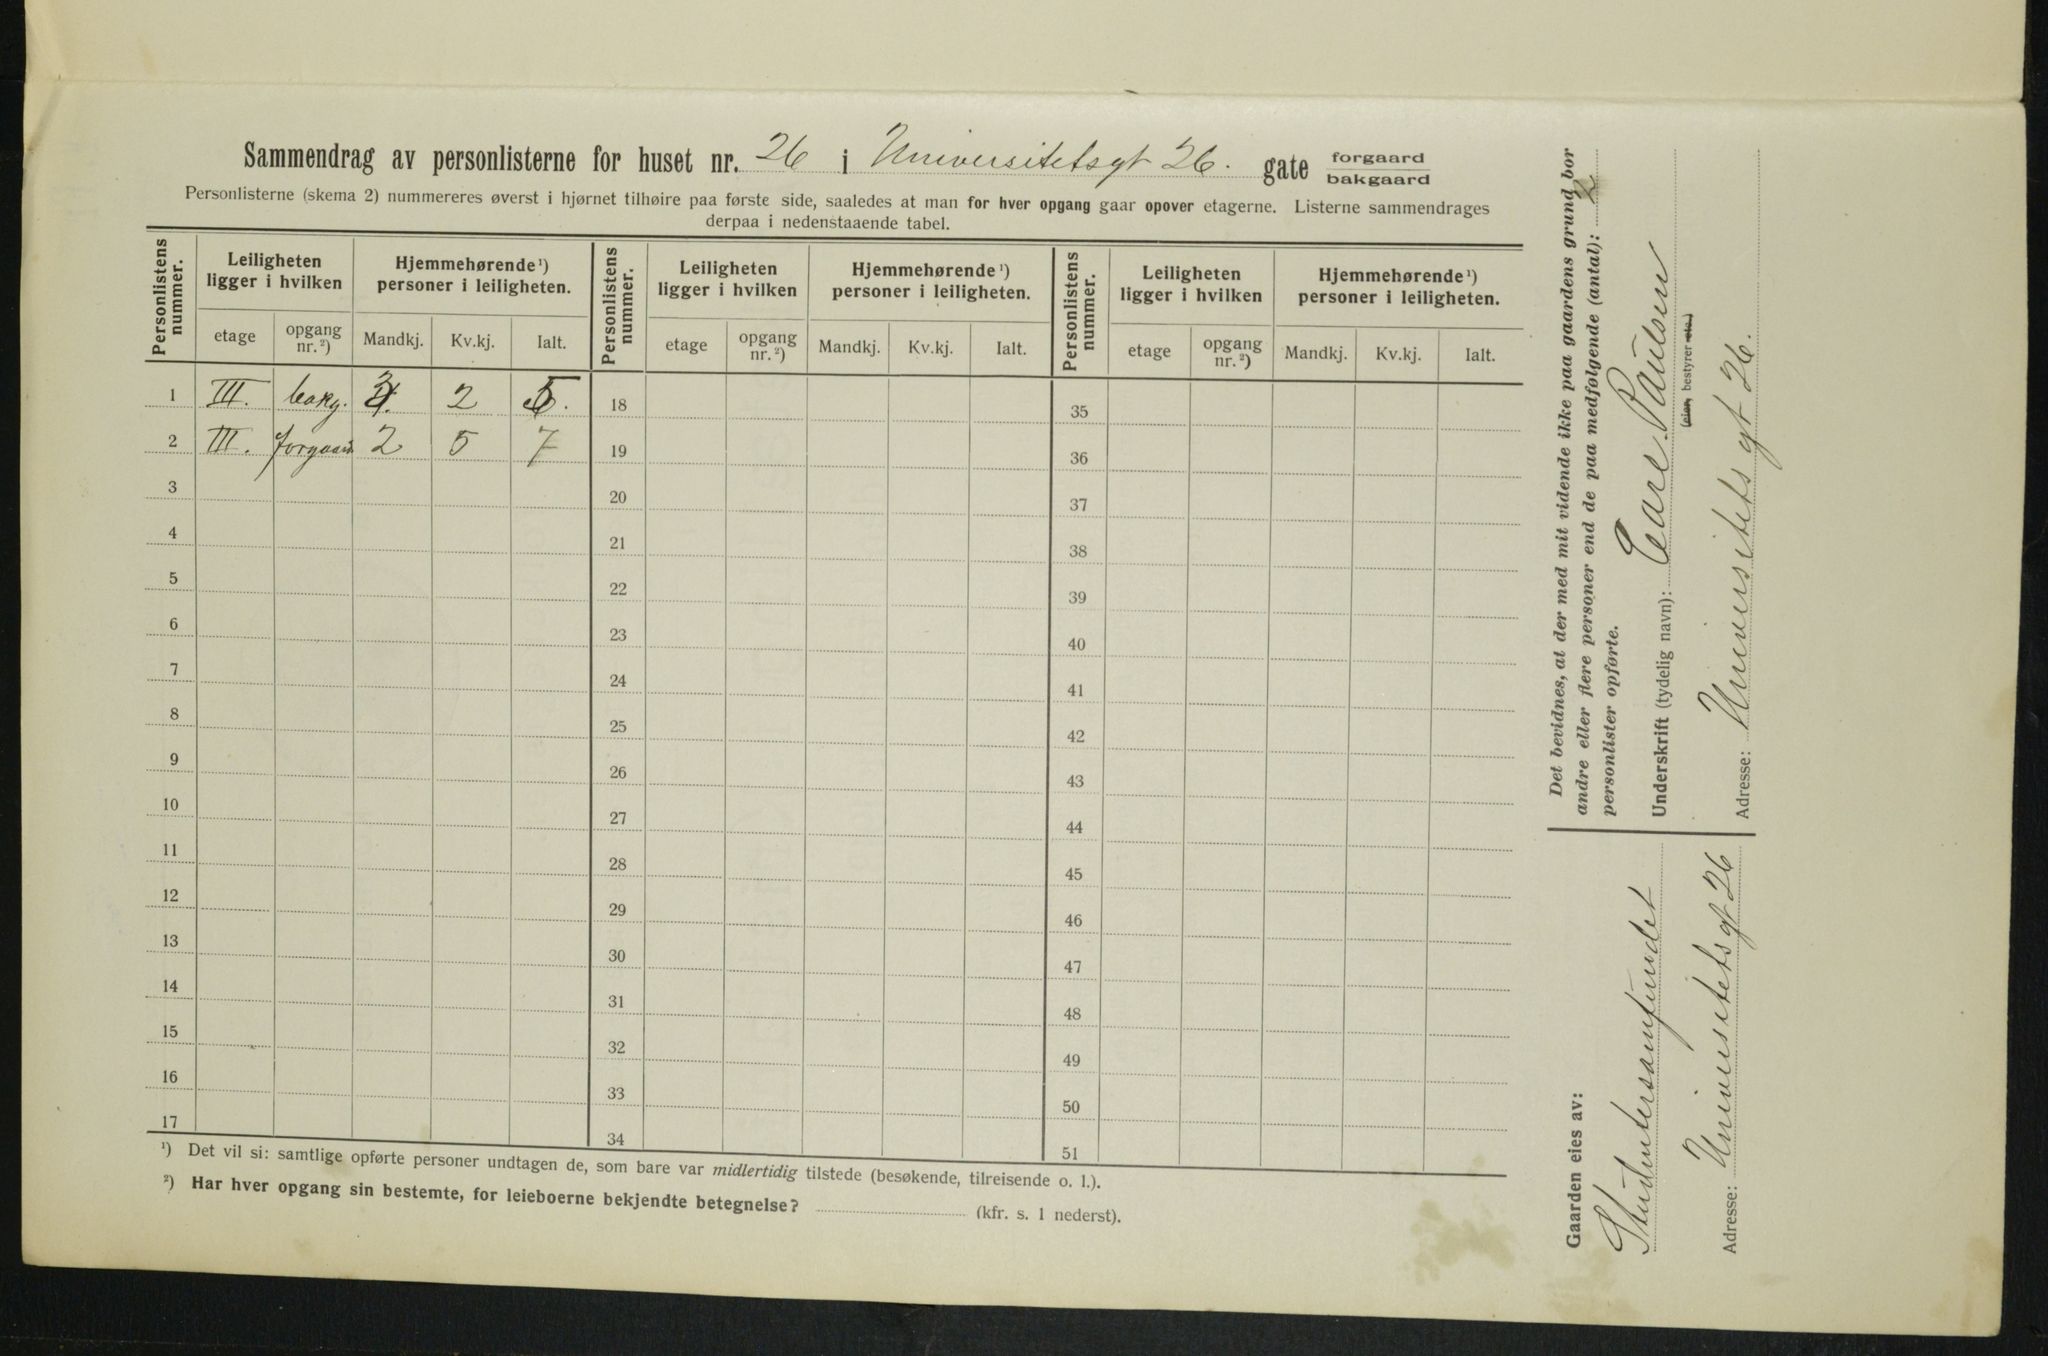 Sammendrag av personlisterne for huset nr. 26 i Universitetsgt 26. gate forgaard
bakgaard
Personlisterne (skema 2) nummereres øverst i hjørnet tilhøire paa første side, saaledes at man for hver opgang gaar opover etagerne. Listerne sammendrages
derpaa i nedenstaaende tabel.
Personlistens nummer. Leiligheten ligger i hvilken Hjemmehørende¹) personer i leiligheten. Personlistens nummer. Leiligheten ligger i hvilken Hjemmehørende¹) personer i leiligheten. Personlistens nummer. Leiligheten ligger i hvilken Hjemmehørende¹) personer i leiligheten.
etage opgang nr.²) Mandkj. Kv.kj. Ialt. etage opgang nr.²) Mandkj. Kv.kj. Ialt. etage opgang nr.²) Mandkj. Kv.kj. Ialt.
1 III. bakg. 3. 2 5. 18 35
2 III. forgaard 2 5 7 19 36
3 20 37
4 21 38
5 22 39
6 23 40
7 24 41
8 25 42
9 26 43
10 27 44
11 28 45
12 29 46
13 30 47
14 31 48
15 32 49
16 33 50
17 34 51
¹) Det vil si: samtlige opførte personer undtagen de, som bare var midlertidig tilstede (besøkende, tilreisende o. l.).
²) Har hver opgang sin bestemte, for leieboerne bekjendte betegnelse? (kfr. s. 1 nederst).
Det bevidnes, at der med mit vidende ikke paa gaardens grund bor
andre eller flere personer end de paa medfølgende (antal): 2
personlister opførte.
Underskrift (tydelig navn): Carl Paulsen
(eier, bestyrer etc.)
Adresse: Universitetsgt 26.
Gaarden eies av:
Studentersamfundet
Adresse: Universitetsgt 26